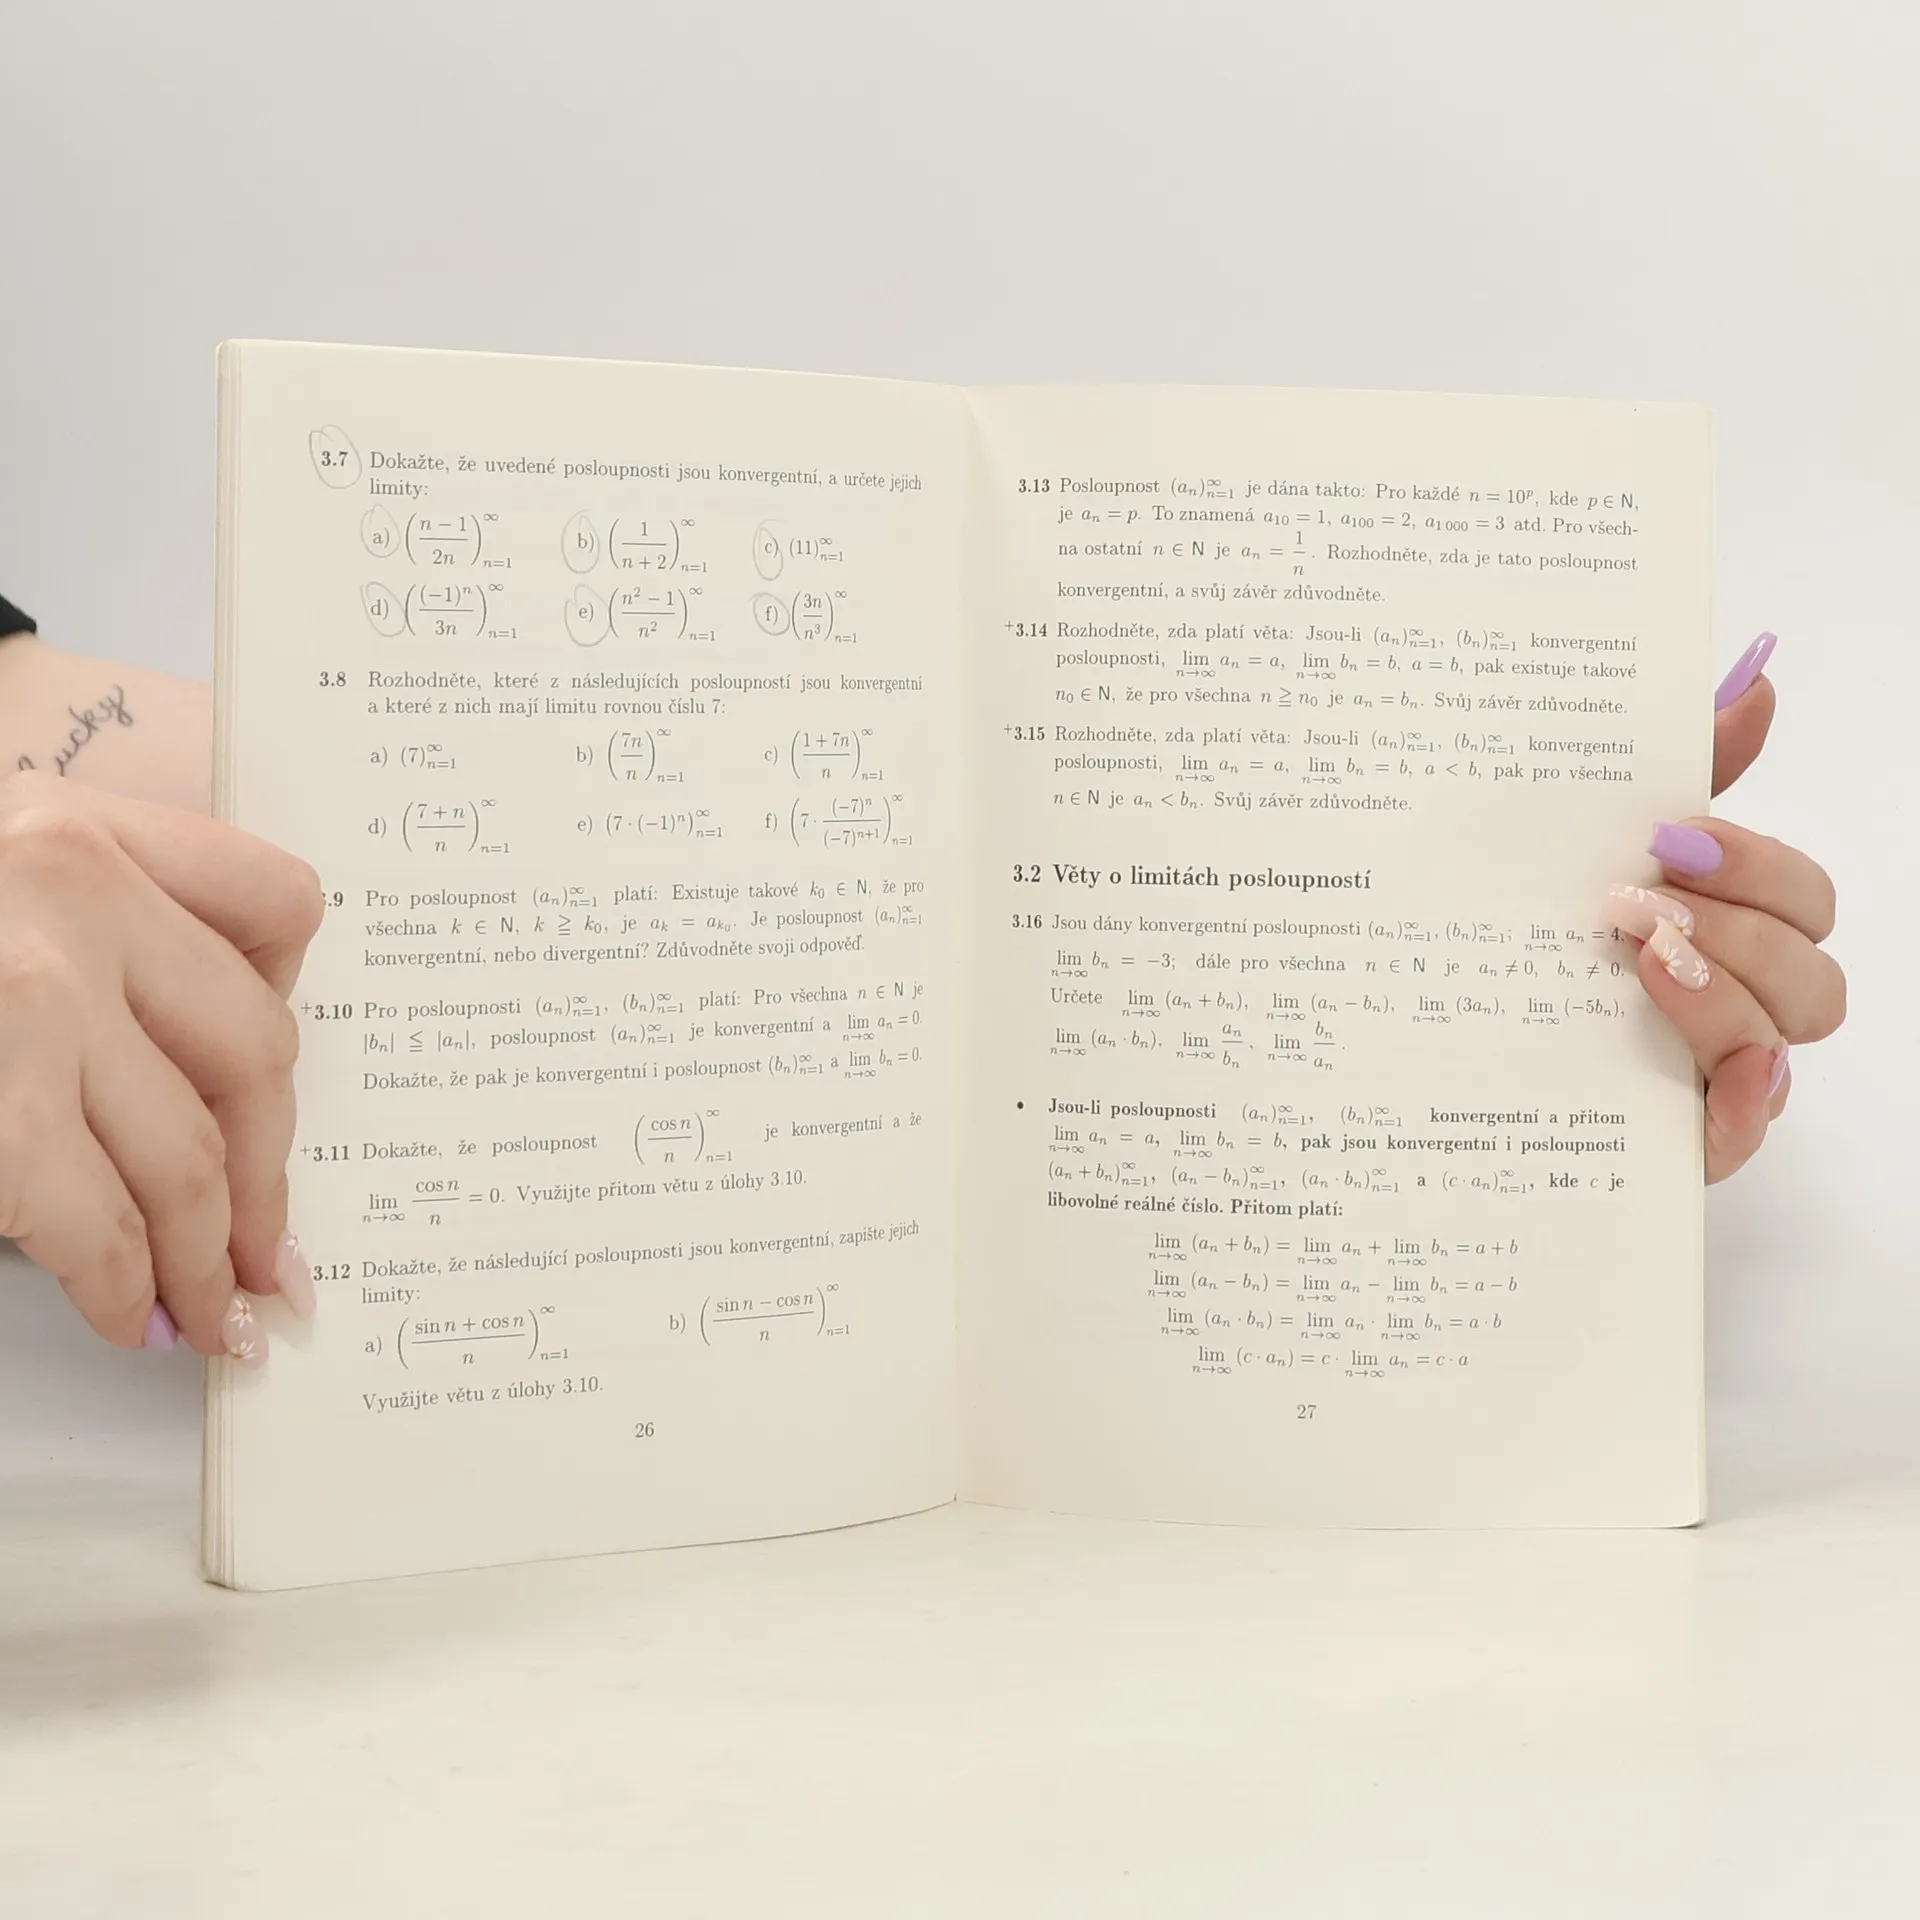 Lucky
3.7 Dokažte, že uvedené posloupnosti jsou konvergentní, a určete jejich
limity:
a) ((n − 1)/(2n))_{n=1}^∞ b) (1/(n + 2))_{n=1}^∞ c) (11)_{n=1}^∞
d) ((−1)^n/(3n))_{n=1}^∞ e) ((n² − 1)/n²)_{n=1}^∞ f) (3n/n³)_{n=1}^∞
3.8 Rozhodněte, které z následujících posloupností jsou konvergentní
a které z nich mají limitu rovnou číslu 7:
a) (7)_{n=1}^∞ b) (7n/n)_{n=1}^∞ c) ((1 + 7n)/n)_{n=1}^∞
d) ((7 + n)/n)_{n=1}^∞ e) (7 · (−1)^n)_{n=1}^∞ f) (7 · (−7)^n/(−7)^{n+1})_{n=1}^∞
.9 Pro posloupnost (a_n)_{n=1}^∞ platí: Existuje takové k_0 ∈ N, že pro
všechna k ∈ N, k ≧ k_0, je a_k = a_{k_0}. Je posloupnost (a_n)_{n=1}^∞
konvergentní, nebo divergentní? Zdůvodněte svoji odpověď.
+3.10 Pro posloupnosti (a_n)_{n=1}^∞, (b_n)_{n=1}^∞ platí: Pro všechna n ∈ N je
|b_n| ≦ |a_n|, posloupnost (a_n)_{n=1}^∞ je konvergentní a lim_{n→∞} a_n = 0.
Dokažte, že pak je konvergentní i posloupnost (b_n)_{n=1}^∞ a lim_{n→∞} b_n = 0.
+3.11 Dokažte, že posloupnost (cos n/n)_{n=1}^∞ je konvergentní a že
lim_{n→∞} cos n/n = 0. Využijte přitom větu z úlohy 3.10.
3.12 Dokažte, že následující posloupnosti jsou konvergentní, zapište jejich
limity:
a) ((sin n + cos n)/n)_{n=1}^∞ b) ((sin n − cos n)/n)_{n=1}^∞
Využijte větu z úlohy 3.10.
26
3.13 Posloupnost (a_n)_{n=1}^∞ je dána takto: Pro každé n = 10^p, kde p ∈ N,
je a_n = p. To znamená a_{10} = 1, a_{100} = 2, a_{1 000} = 3 atd. Pro všech-
na ostatní n ∈ N je a_n = 1/n. Rozhodněte, zda je tato posloupnost
konvergentní, a svůj závěr zdůvodněte.
+3.14 Rozhodněte, zda platí věta: Jsou-li (a_n)_{n=1}^∞, (b_n)_{n=1}^∞ konvergentní
posloupnosti, lim_{n→∞} a_n = a, lim_{n→∞} b_n = b, a = b, pak existuje takové
n_0 ∈ N, že pro všechna n ≧ n_0 je a_n = b_n. Svůj závěr zdůvodněte.
+3.15 Rozhodněte, zda platí věta: Jsou-li (a_n)_{n=1}^∞, (b_n)_{n=1}^∞ konvergentní
posloupnosti, lim_{n→∞} a_n = a, lim_{n→∞} b_n = b, a < b, pak pro všechna
n ∈ N je a_n < b_n. Svůj závěr zdůvodněte.
3.2 Věty o limitách posloupností
3.16 Jsou dány konvergentní posloupnosti (a_n)_{n=1}^∞, (b_n)_{n=1}^∞; lim_{n→∞} a_n = 4,
lim_{n→∞} b_n = −3; dále pro všechna n ∈ N je a_n ≠ 0, b_n ≠ 0.
Určete lim_{n→∞} (a_n + b_n), lim_{n→∞} (a_n − b_n), lim_{n→∞} (3a_n), lim_{n→∞} (−5b_n),
lim_{n→∞} (a_n · b_n), lim_{n→∞} a_n/b_n, lim_{n→∞} b_n/a_n.
• Jsou-li posloupnosti (a_n)_{n=1}^∞, (b_n)_{n=1}^∞ konvergentní a přitom
lim_{n→∞} a_n = a, lim_{n→∞} b_n = b, pak jsou konvergentní i posloupnosti
(a_n + b_n)_{n=1}^∞, (a_n − b_n)_{n=1}^∞, (a_n · b_n)_{n=1}^∞ a (c · a_n)_{n=1}^∞, kde c je
libovolné reálné číslo. Přitom platí:
lim_{n→∞} (a_n + b_n) = lim_{n→∞} a_n + lim_{n→∞} b_n = a + b
lim_{n→∞} (a_n − b_n) = lim_{n→∞} a_n − lim_{n→∞} b_n = a − b
lim_{n→∞} (a_n · b_n) = lim_{n→∞} a_n · lim_{n→∞} b_n = a · b
lim_{n→∞} (c · a_n) = c · lim_{n→∞} a_n = c · a
27